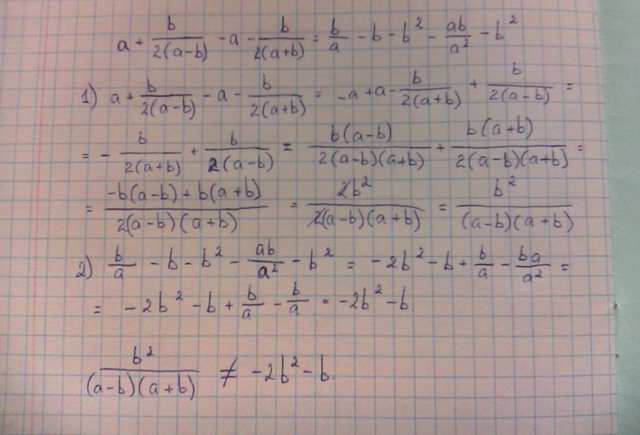 a + b/2(a-b) - a - b/2(a+b) = b/a - b - b² - ab/a² - b²
1) a + b/2(a-b) - a - b/2(a+b) = -a + a - b/2(a+b) + b/2(a-b) =
= - b/2(a+b) + b/2(a-b) = b(a-b)/2(a-b)(a+b) + b(a+b)/2(a-b)(a+b) =
= -b(a-b) + b(a+b)/2(a-b)(a+b) = 2b²/2(a-b)(a+b) = b²/(a-b)(a+b)
2) b/a - b - b² - ab/a² - b² = -2b² - b + b/a - ba/a² =
= -2b² - b + b/a - b/a = -2b² - b
b²/(a-b)(a+b) ≠ -2b² - b.